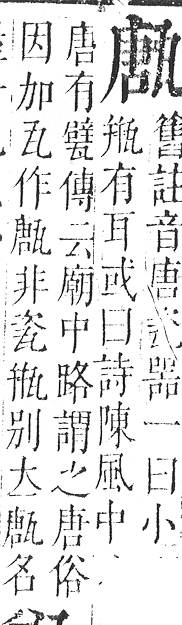 㼺舊註音唐瓷器一曰小
瓶有耳或曰詩陳風中
唐有甓傳云廟中路謂之唐俗
因加瓦作㼺非瓷瓶別大㼺名